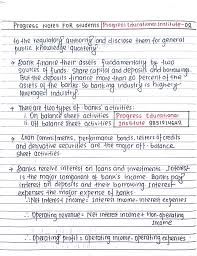 Progress Notes For Students Progress Educational Institute - 02
to the regulatory authority and disclose them for general
public knowledge quarterly.
→ Banks finance their assets fundamentally by two
sources of funds. Share capital and deposits and borrowing.
But the deposits finance more than 80 percent of the
assets of the banks. So banking industry is highly
leveraged industry.
→ There are two types of banks' activities:
i. On balance sheet activities Progress Educational
ii. Off balance sheet activities Institute
→ Loan commitments, performance bonds, letters of credits
and derivative securities are the major off-balance
sheet activities.
→ Banks receive interest on loans and investments. Interest
is the major component of bank's income. Banks pay
interest on deposits and their borrowing. Interest
expenses the major expense of banks.
∴ Net interest income = Interest income - Interest expenses
∴ Operating revenue = Net interest income + Non-operating
income
∴ Operating profit = Operating income - operating expenses